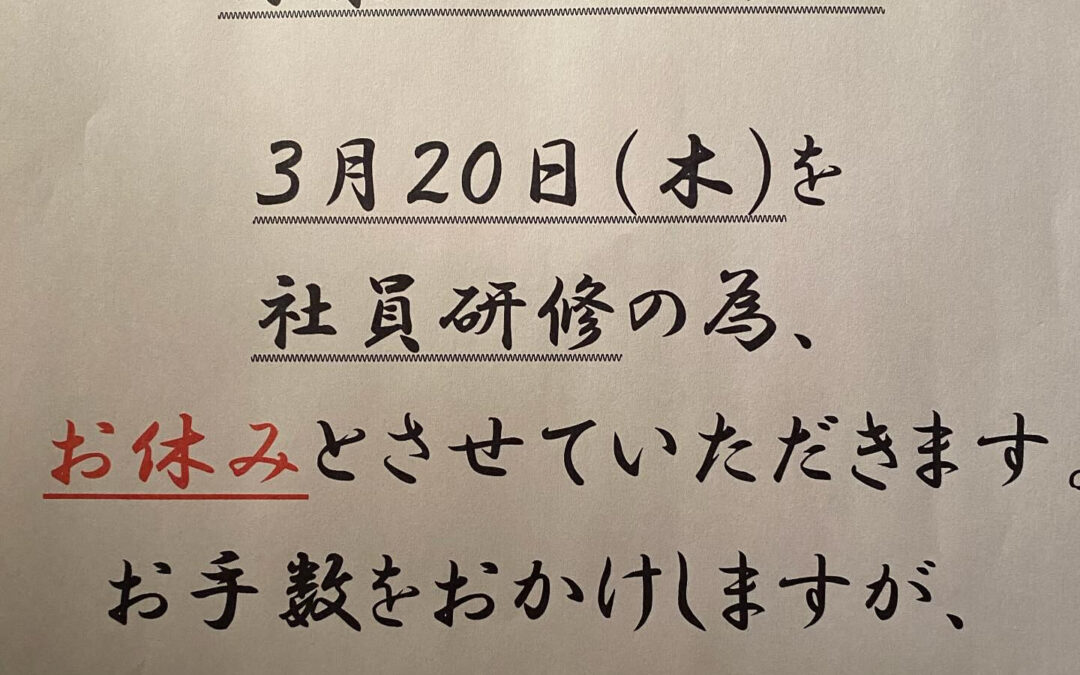 3月20日(木)を
社員研修の為、
お休みとさせていただきます。
お手数をおかけしますが、